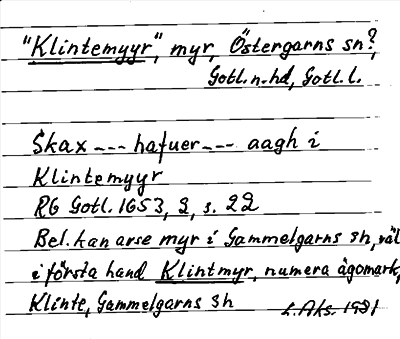 "Klintemyyr", myr, Östergarns sn?,
Gotl. n. hd, Gotl. l.
Skax --- hafuer --- aagh i
Klintemyyr
RG Gotl. 1653, 2, s. 22
Bel. kan avse myr i Gammelgarns sn, väl
i första hand Klintmyr, numera ägomark,
Klinte, Gammelgarns sn
L. Aks. 1981